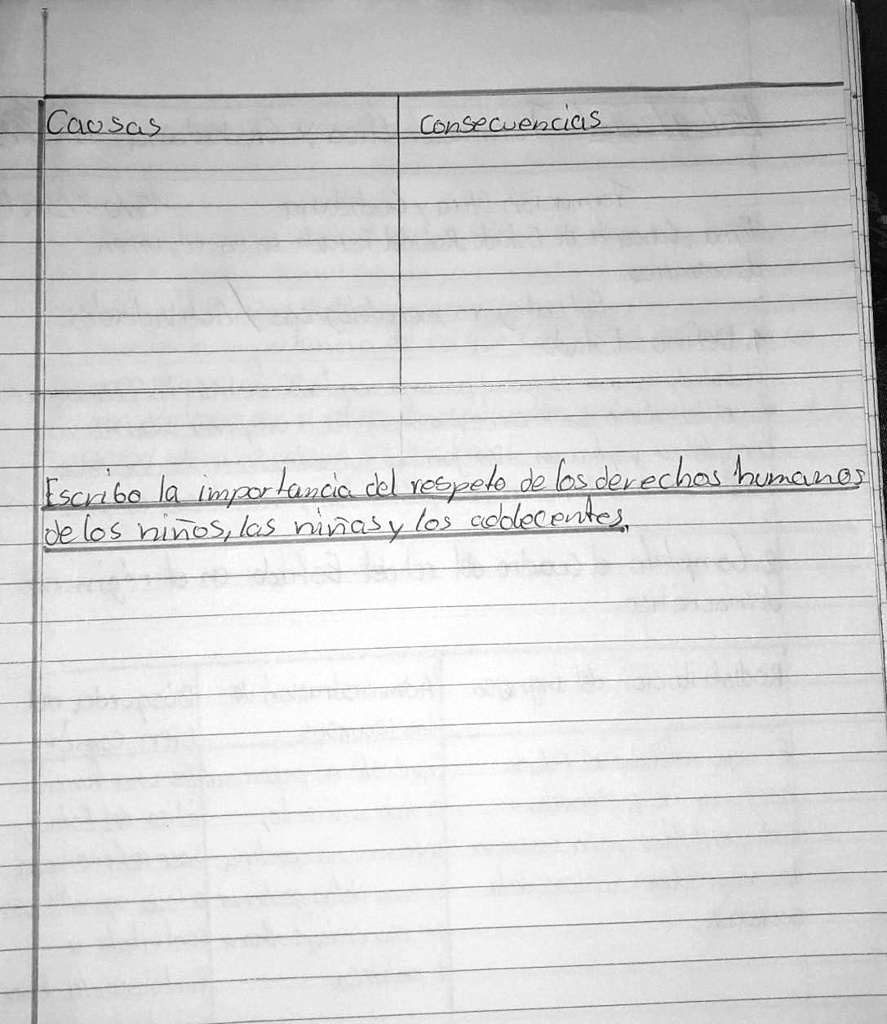 Causas
Consecuencias
Escribo la importancia del respeto de los derechos humanos
de los niños, las niñas y los adolecentes.